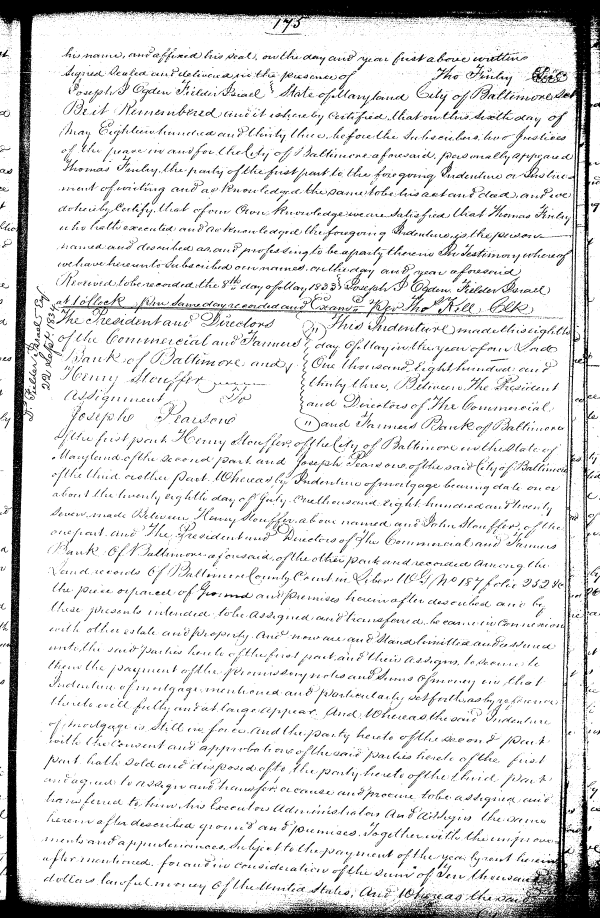 175
his name, and affixed his seal, on the day and year first above written
Signed Sealed and delivered in the presence of Tho Finley Seal
Joseph J Ogden Fielder Israel } State of Maryland City of Baltimore Sct
Be it Remembered and it is hereby certified, that on this Sixth day of
May Eighteen hundred and thirty three, before the Subscribers, two Justices
of the peace in and for the City of Baltimore aforesaid, personally appeared
Thomas Finley, the party of the first part to the foregoing Indenture or Instru
ment of writing and acknowledged the same to be his act and deed, and we
do hereby Certify, that of our Own Knowledge we are Satisfied that Thomas Finley
who hath executed and acknowledged the foregoing Indenture, is the person
named and described as, and professing to be a party thereto In Testimony whereof
we have hereunto Subscribed our names, on the day and year aforesaid
Received to be recorded the 8th day of May 1833 } Joseph J Ogden Fielder Israel
at 1 oClock P.m. Same day recorded and Examd per Thos Kell, Clk
D. Fielder Israel
22 Sept 1834
The President and Directors
of the Commercial and Farmers
Bank of Baltimore and
Henry Stouffer
Assignment To
Joseph Pearson
This Indenture made this eighth
day of May in the year of our Lord
One thousand, eight hundred and
thirty three, Between The President
and Directors of The Commercial
and Farmers Bank of Baltimore
of the first part Henry Stouffer, of the City of Baltimore in the State of
Maryland of the second part and Joseph Pearson of the said City of Baltimore
of the third or other part. Whereas by Indenture of mortgage bearing date on or
about the twenty eighth day of July one thousand eight hundred and twenty
seven, made Between Henry Stouffer above named and John Stouffer, of the
one part and The President and Directors of The Commercial and Farmers
Bank Of Baltimore aforesaid, of the other part and recorded Among the
Land records Of Baltimore County Court in Liber WG No 187 folio 252 &c
the piece or parcel of Ground and premises herein after described and by
these presents intended to be assigned and transferred, became in Connexion
with other estate and property. And now are and Stand limitted and assured
unto the said parties hereto of the first part and their Assigns, to secure to
them the payment of the promissory notes and Sums of money in that
Indenture of mortgage mentioned and particularly set forth, as by reference
thereto will fully and at large appear. And Whereas the said Indenture
of mortgage is still in force And the party hereto of the second part
with the Consent and approbation of the said parties hereto of the first
part hath sold and disposed of to the party hereto of the third part
and agreed to assign and transfer, or cause and procure to be assigned and
transferred to him, his Executors Administrators And Assigns the same
herein after described ground and premises. Together with the improve
ments and appurtenances, Subject to the payment of the yearly rent herein
after mentioned, for and in consideration of the sum of Ten thousand
dollars lawful money Of the United States, And Whereas the said